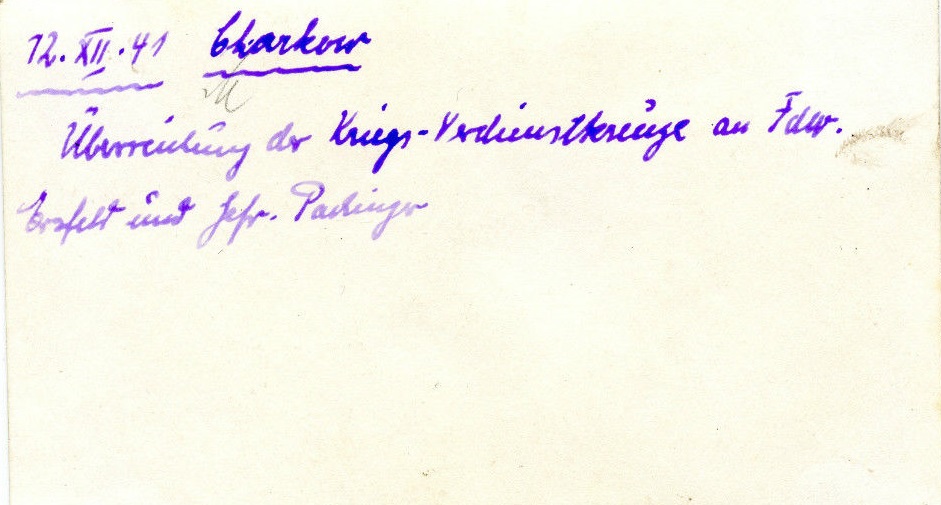 12.XII.41 Charkow
Überreichung der Kriegs-Verdienstkreuze an Fdw.
und Gefr. Pachinger